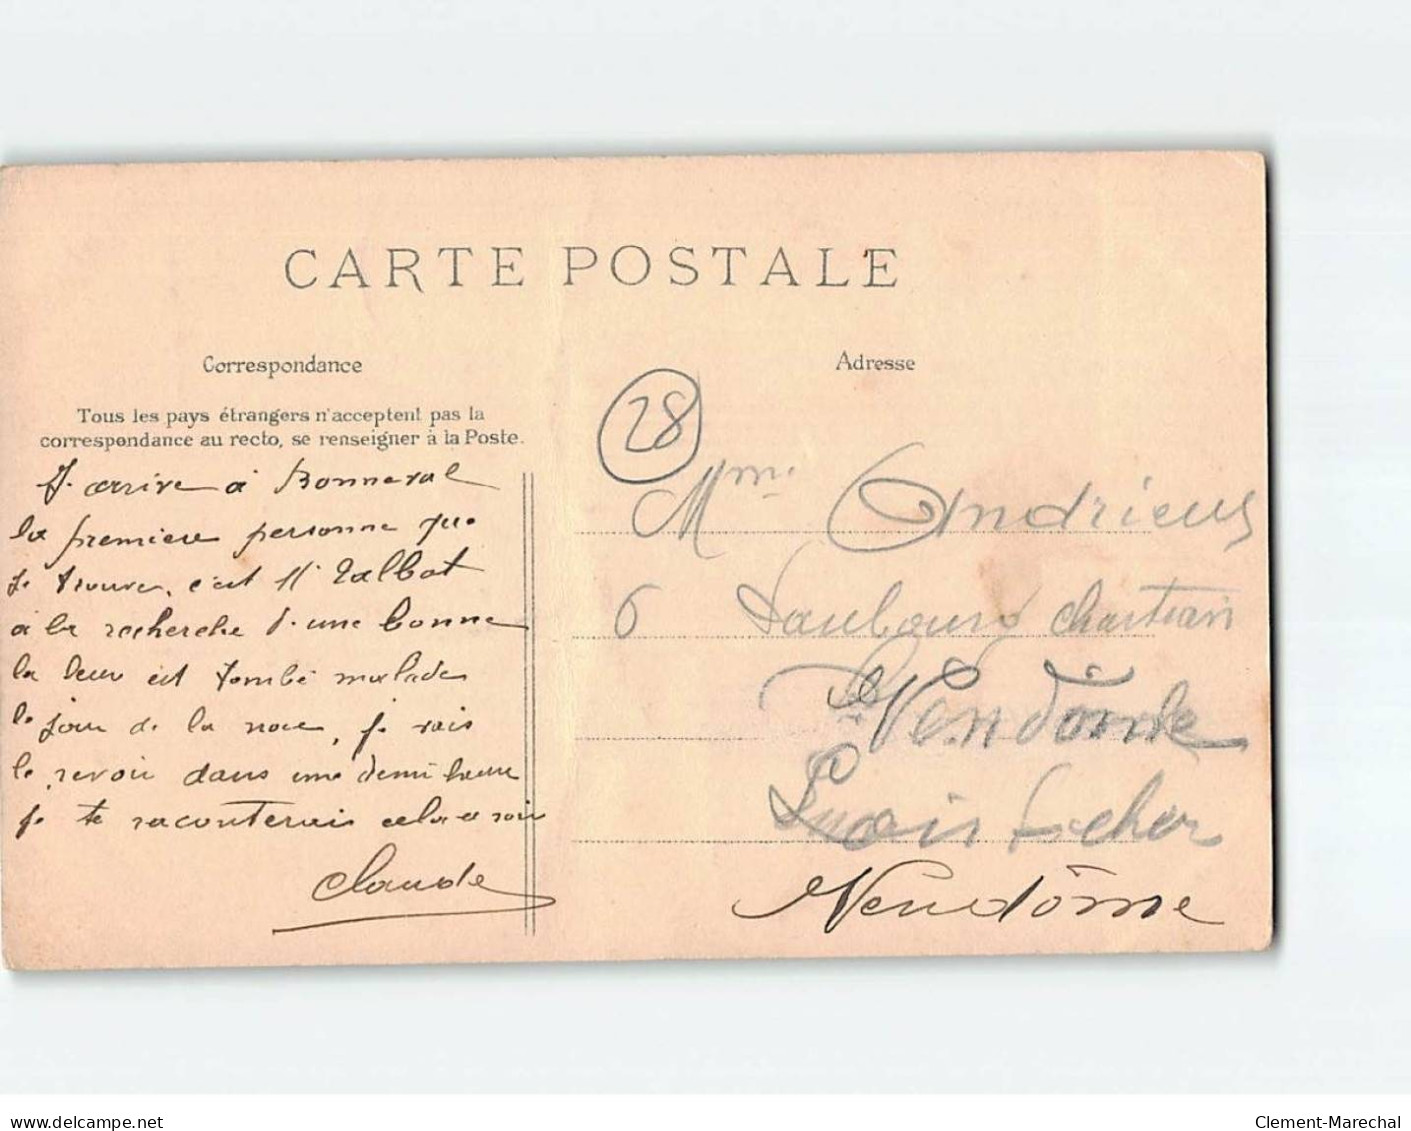 CARTE POSTALE
Correspondance
Tous les pays étrangers n'acceptent pas la
correspondance au recto, se renseigner à la Poste.
J. arrive à Bonneval
la premiere personne que
je trouve, c'est Mr Talbot
à la recherche d'une bonne
la leur est tombé malade
le jour de la noce, je vais
le revoir dans une demi heure
je te raconterais cela ce soir
Claude
Adresse
28
Mme Andrieux
6 Faubourg chartrain
Vendôme
Loir & cher
Vendôme
delcampe.net
Clement-Marechal